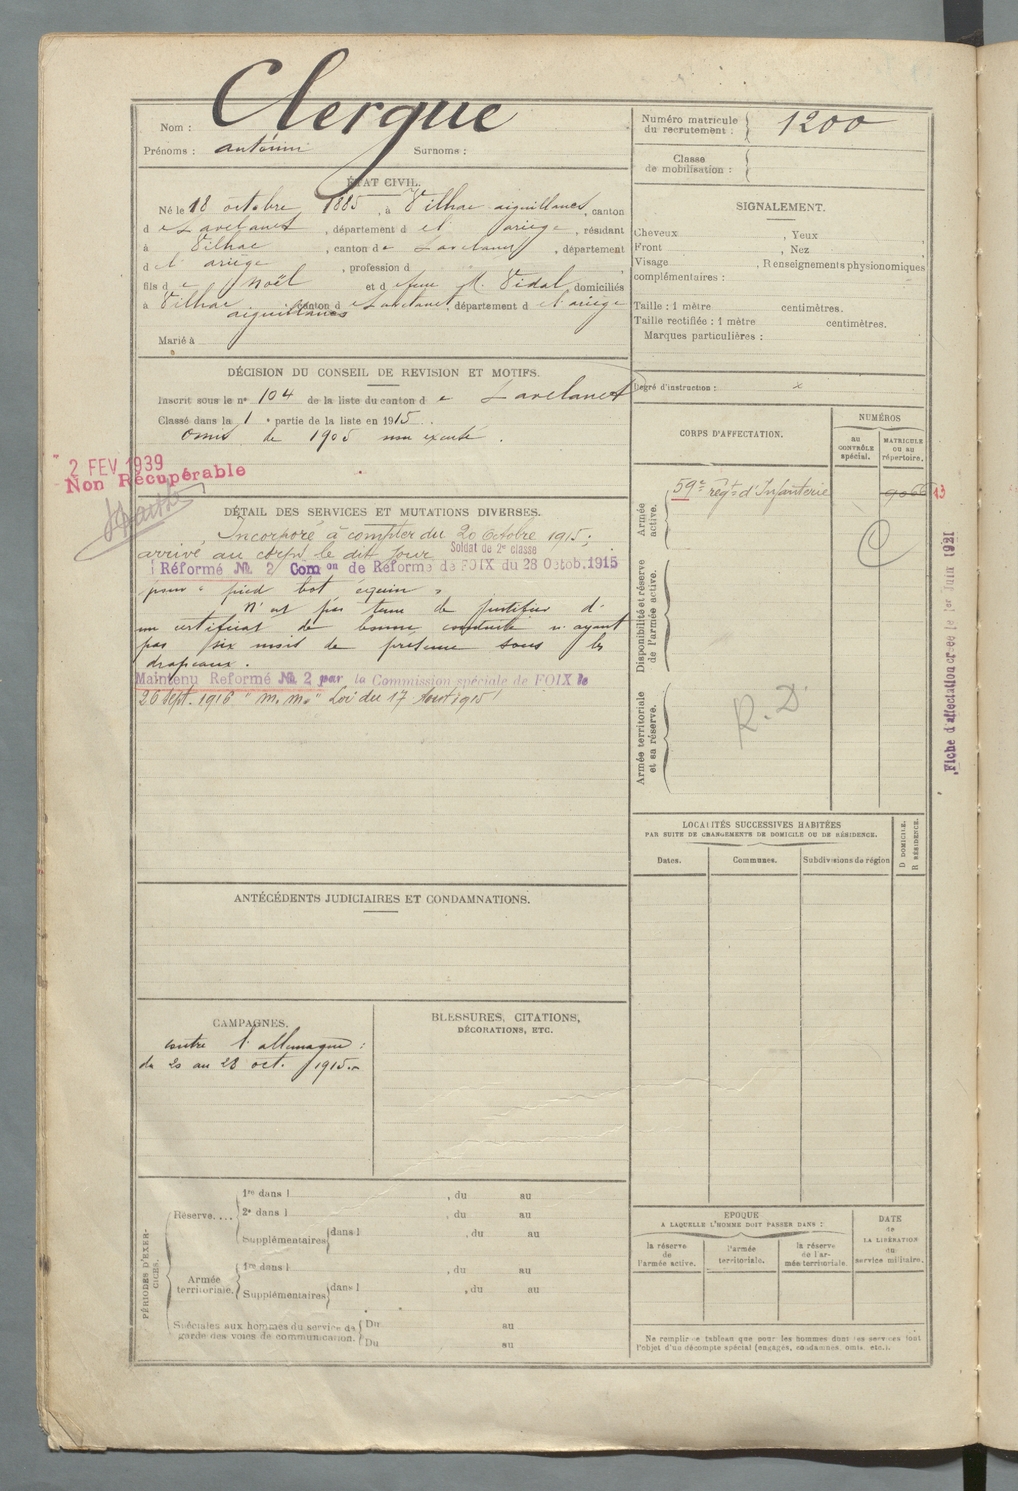 Nom : Clergue
Prénoms : antonin Surnoms :
Numéro matricule du recrutement : 1200
Classe de mobilisation :
ÉTAT CIVIL.
Né le 18 octobre 1885, à Vilhac aiguillanes, canton
d e Lavelanet, département d e l' ariège, résidant
à Vilhac, canton de Lavelanet, département
d e l' ariège, profession d
fils d e Noël et d e feue M. Vidal, domiciliés
à Vilhac aiguillanes, canton d e Lavelanet, département d e l'ariège
Marié à
SIGNALEMENT.
Cheveux , Yeux ,
Front , Nez
Visage , Renseignements physionomiques
complémentaires :
Taille : 1 mètre centimètres.
Taille rectifiée : 1 mètre centimètres.
Marques particulières :
Degré d'instruction : x
DÉCISION DU CONSEIL DE REVISION ET MOTIFS.
Inscrit sous le n° 104 de la liste du canton d e Lavelanet
Classé dans la 1 e partie de la liste en 1915.
omis de 1905 non excusé.
2 FEV 1939
Non Récupérable
DÉTAIL DES SERVICES ET MUTATIONS DIVERSES.
Incorporé à compter du 20 Octobre 1915;
arrivé au corps le dit Jour Soldat de 2e classe
Réformé № 2 Com on de Réforme de FOIX du 28 Octob. 1915
pour " pied bot équin "
N'est pas tenu de justifier d'
un certificat de bonne conduite n'ayant
pas six mois de présence sous les
drapeaux.
Maintenu Reformé № 2 par la Commission spéciale de FOIX le
26 Sept. 1916 " m. m. " Loi du 17 Aout 1915
CORPS D'AFFECTATION.
NUMÉROS
au CONTRÔLE spécial.
MATRICULE ou au répertoire.
Armée active.
59e regt d'Infanterie 9066 13
C
Disponibilité et réserve de l'armée active.
Armée territoriale et sa réserve.
R. D.
Fiche d'affectation créée le 1er Juin 1921
LOCALITÉS SUCCESSIVES HABITÉES
PAR SUITE DE CHANGEMENTS DE DOMICILE OU DE RÉSIDENCE.
D DOMICILE.
R RÉSIDENCE.
Dates. Communes. Subdivisions de région
ANTÉCÉDENTS JUDICIAIRES ET CONDAMNATIONS.
CAMPAGNES.
contre l'allemagne :
du 20 au 28 oct. 1915.
BLESSURES, CITATIONS,
DÉCORATIONS, ETC.
PÉRIODES D'EXERCICES.
Réserve....
1re dans l , du au
2e dans l , du au
Supplémentaires dans l , du au
Armée territoriale.
1re dans l , du au
Supplémentaires dans l , du au
Spéciales aux hommes du service de
garde des voies de communication.
Du au
Du au
EPOQUE
A LAQUELLE L'HOMME DOIT PASSER DANS :
la réserve de l'armée active.
l'armée territoriale.
la réserve de l'armée territoriale.
DATE de LA LIBÉRATION du service militaire.
Ne remplir ce tableau que pour les hommes dont les services font
l'objet d'un décompte spécial (engagés, condamnés, omis, etc.).